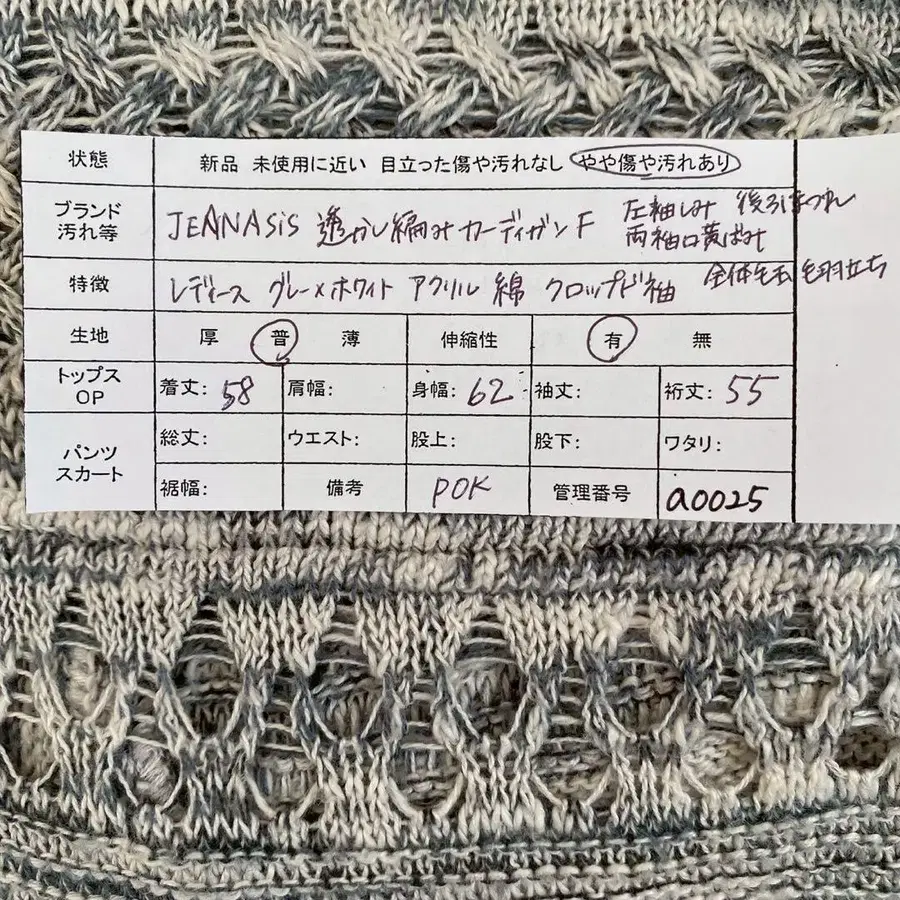 状態 新品 未使用に近い 目立った傷や汚れなし やや傷や汚れあり
ブランド 汚れ等 JEANASiS 透かし編みカーディガン F 左袖しみ 後ろほつれ
両袖口黄ばみ
特徴 レディース グレー×ホワイト アクリル 綿 クロップド袖 全体毛玉 毛羽立ち
生地 厚 普 薄 伸縮性 有 無
トップス OP 着丈: 58 肩幅: 身幅: 62 袖丈: 裄丈: 55
パンツ スカート 総丈: ウエスト: 股上: 股下: ワタリ:
裾幅: 備考 POK 管理番号 a0025